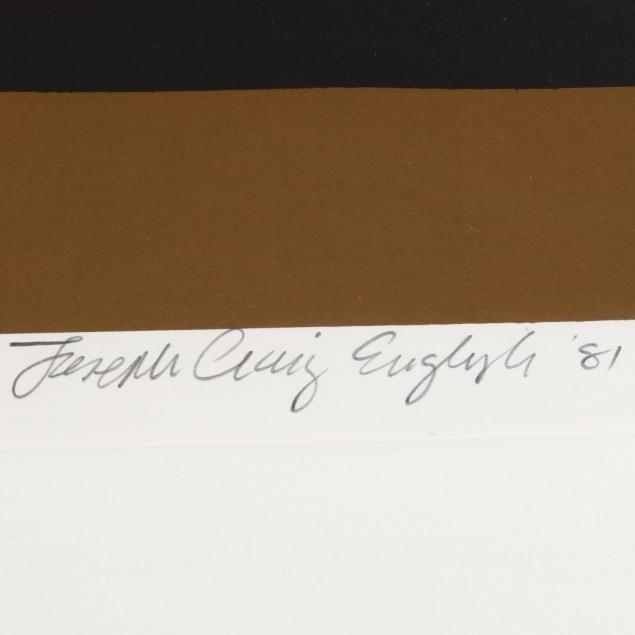 Joseph Craig English '81